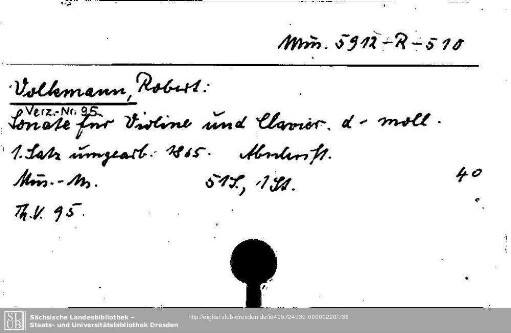 Mus. 5912-R-510
Volkmann, Robert:
Verz.-Nr. 95
Sonate für Violine und Clavier. d-moll.
1. Satz umgearb. 1865. Abschrift.
Mus.-Ms. 51 S., 1 St. 40
Th. V. 95.
SLUB
Sächsische Landesbibliothek –
Staats- und Universitätsbibliothek Dresden